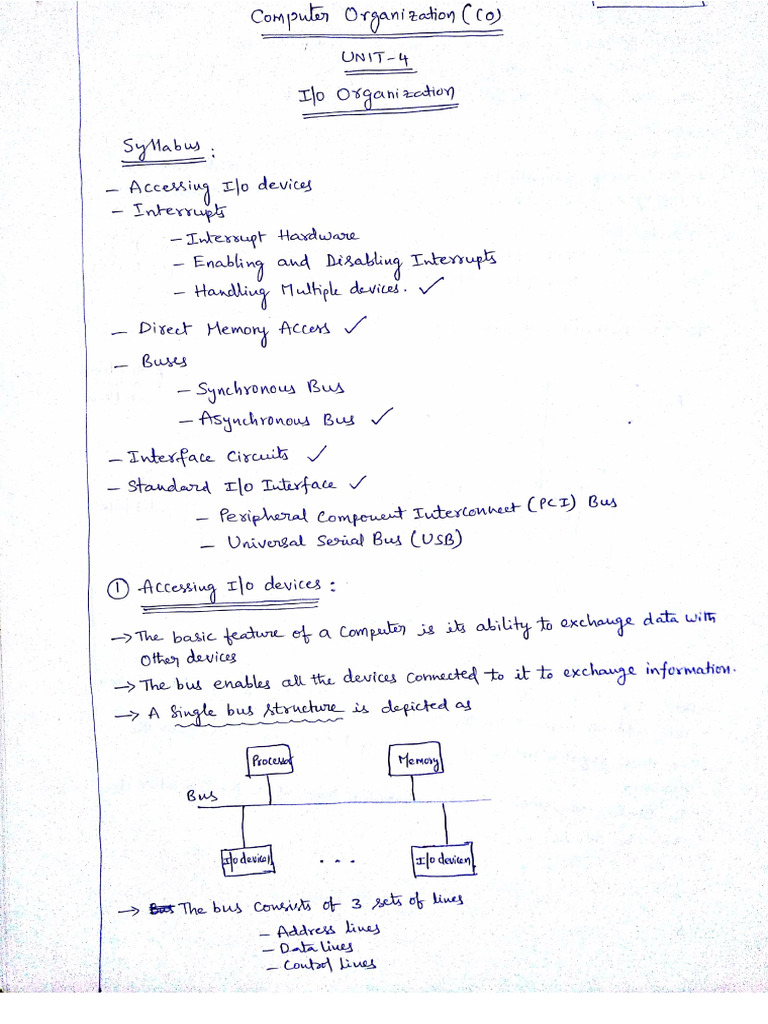 Computer Organization (CO)
UNIT-4
I/o Organization
Syllabus :
- Accessing I/o devices
- Interrupts
- Interrupt Hardware
- Enabling and Disabling Interrupts
- Handling Multiple devices. ✓
- Direct Memory Access ✓
- Buses
- Synchronous Bus
- Asynchronous Bus ✓
- Interface Circuits ✓
- Standard I/o Interface ✓
- Peripheral Component Interconnect (PCI) Bus
- Universal Serial Bus (USB)
① Accessing I/o devices :
→ The basic feature of a computer is its ability to exchange data with
other devices
→ The bus enables all the devices connected to it to exchange information.
→ A single bus structure is depicted as
Processor Memory
Bus
I/o device1 ... I/o device n
→ Bus The bus consists of 3 sets of lines
- Address lines
- Data lines
- Control lines